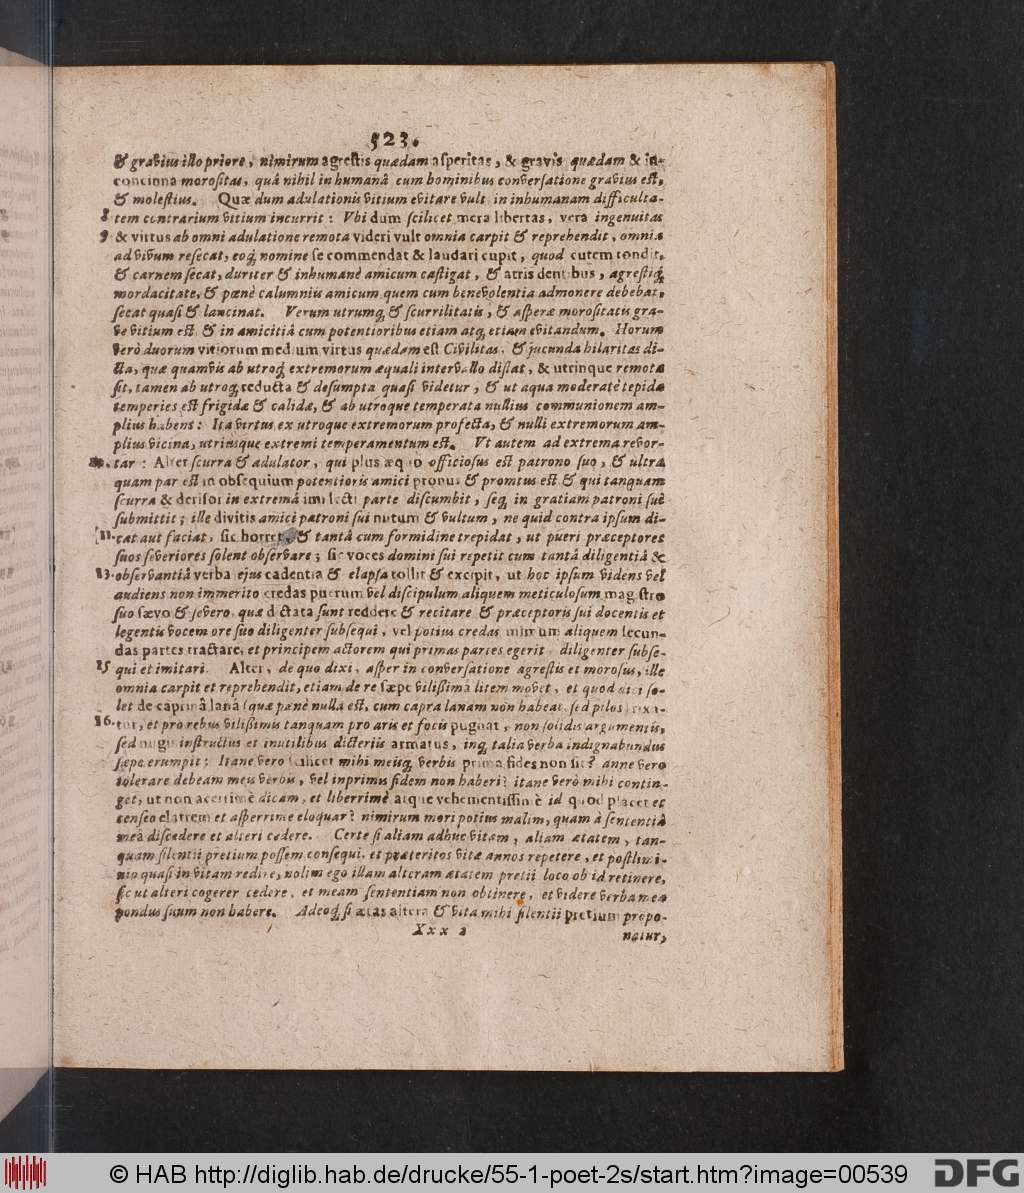 523.
& graviùs illo priore, nimirum agrestis quædam asperitas, & gravis quædam & in-
concinna morositas, quâ nihil in humanâ cum hominibus conversatione gravius est,
& molestius. Quæ dum adulationis vitium evitare vult in inhumanam difficulta-
8 tem contrarium vitium incurrit: Vbi dum scilicet mera libertas, vera ingenuitas
9 & virtus ab omni adulatione remota videri vult omnia carpit & reprehendit, omnia
ad vivum resecat, eoq; nomine se commendat & laudari cupit, quod cutem tondit,
& carnem secat, duriter & inhumanè amicum castigat, & atris dentibus, agrestiq;
mordacitate, & pœnè calumniis amicum quem cum benevolentia admonere debebat,
secat quasi & lancinat. Verum utrumq; & scurrilitatis, & asperæ morositatis gra-
ve vitium est & in amicitiâ cum potentioribus etiam atq; etiam evitandum. Horum
verò duorum vitiorum medium virtus quædam est Civilitas, & jucunda hilaritas di-
cta, quæ quamvis ab utroq; extremorum æquali intervallo distat, & utrinque remota
sit, tamen ab utroq; reducta & desumpta quasi videtur, & ut aqua moderatè tepidæ
temperies est frigidæ & calidæ, & ab utroque temperata nullius communionem am-
plius habens: Ita virtus ex utroque extremorum profecta, & nulli extremorum am-
plius vicina, utriusque extremi temperamentum est. Vt autem ad extrema revor-
tar: Alter scurra & adulator, qui plus æquo officiosus est patrono suo, & ultra
quam par est in obsequium potentioris amici pronus & promtus est & qui tanquam
scurra & derisor in extremâ imi lecti parte discumbit, seq; in gratiam patroni suè
submittit; ille divitis amici patroni sui nutum & vultum, ne quid contra ipsum di-
11. cat aut faciat, sic horret, & tantâ cum formidine trepidat, ut pueri præceptores
suos severiores solent observare; sic voces domini sui repetit cum tantâ diligentiâ &
13. observantiâ verba ejus cadentia & elapsa tollit & excipit, ut hoc ipsum videns vel
audiens non immerito credas puerum vel discipulum aliquem meticulosum magistro
suo sævo & severo, quæ dictata sunt reddere & recitare & præceptoris sui docentis et
legentis vocem ore suo diligenter subsequi, vel potius credas mimum aliquem secun-
das partes tractare, et principem actorem qui primas partes egerit, diligenter subse-
15 qui et imitari. Alter, de quo dixi, asper in conversatione agrestis et morosus, ille
omnia carpit et reprehendit, etiam de re sæpe vilissimâ litem movet, et quod dici so-
let de caprinâ lanâ (quæ pænè nulla est, cum capra lanam non habeat, sed pilos) rixa-
16. tur, et pro rebus vilissimis tanquam pro aris et focis pugnat, non solidis argumentis,
sed nugis instructus et inutilibus dicteriis armatus, inq; talia verba indignabundus
sæpe erumpit; Itane verò scilicet mihi meisq; verbis prima fides non sit? anne verò
tolerare debeam meis verbis, vel inprimis fidem non haberi? itane verò mihi contin-
get, ut non acerrimè dicam, et liberrimè atque vehementissimè id quod placet et
censeo elatrem et asperrime eloquar? nimirum mori potius malim, quam à sententiâ
meâ discedere et alteri cedere. Certe si aliam adhuc vitam, aliam ætatem, tan-
quam silentii pretium possem consequi, et præteritos vitæ annos repetere, et postlimi-
nio quasi in vitam redire, nolim ego illam alteram ætatem pretii loco ob id retinere,
sic ut alteri cogerer cedere, et meam sententiam non obtinere, et videre verba mea
pondus suum non habere. Adeoq; si ætas altera & vita mihi silentii pretium propo-
Xxx 2
natur,
© HAB http://diglib.hab.de/drucke/55-1-poet-2s/start.htm?image=00539
DFG